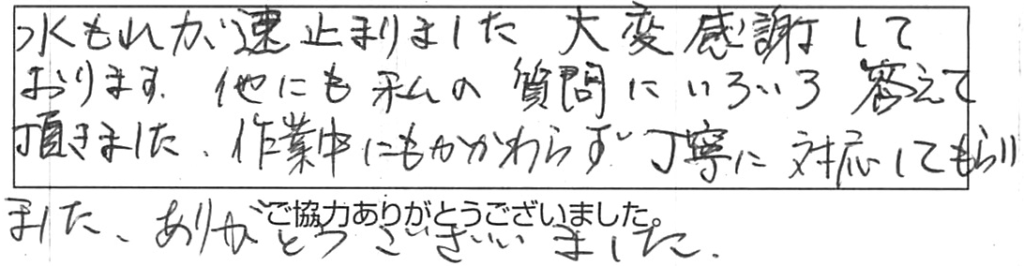 水もれが速止まりました 大変感謝して
おります。他にも私の質問にいろいろ答えて
頂きました、作業中にもかかわらず丁寧に対応してもらい
ました、ありがとうございいました。
ご協力ありがとうございました。